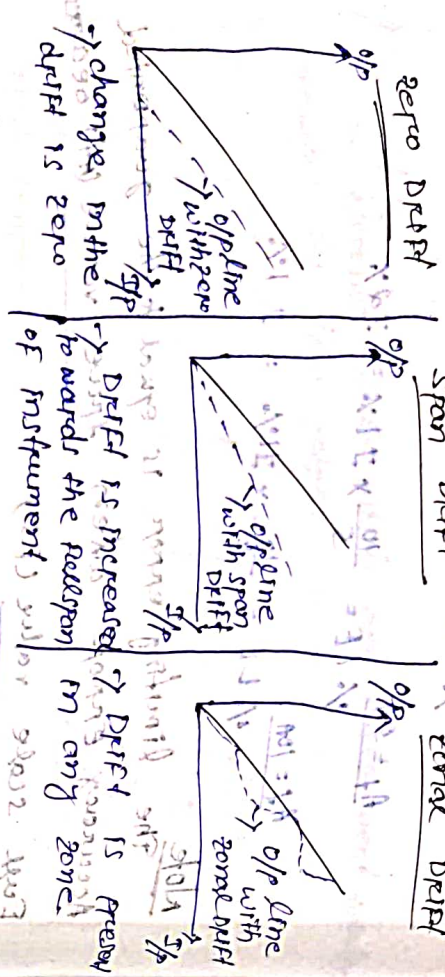 Zero Drift
o/p
o/p line
with zero
Drift
I/p
→ change in the
drift is zero
Span Drift
o/p
o/p line
with span
Drift
I/p
→ Drift is increased
towards the fullspan
of instrument
zonal Drift
o/p
o/p line
with
zonal Drift
I/p
→ Drift is
in any zone.